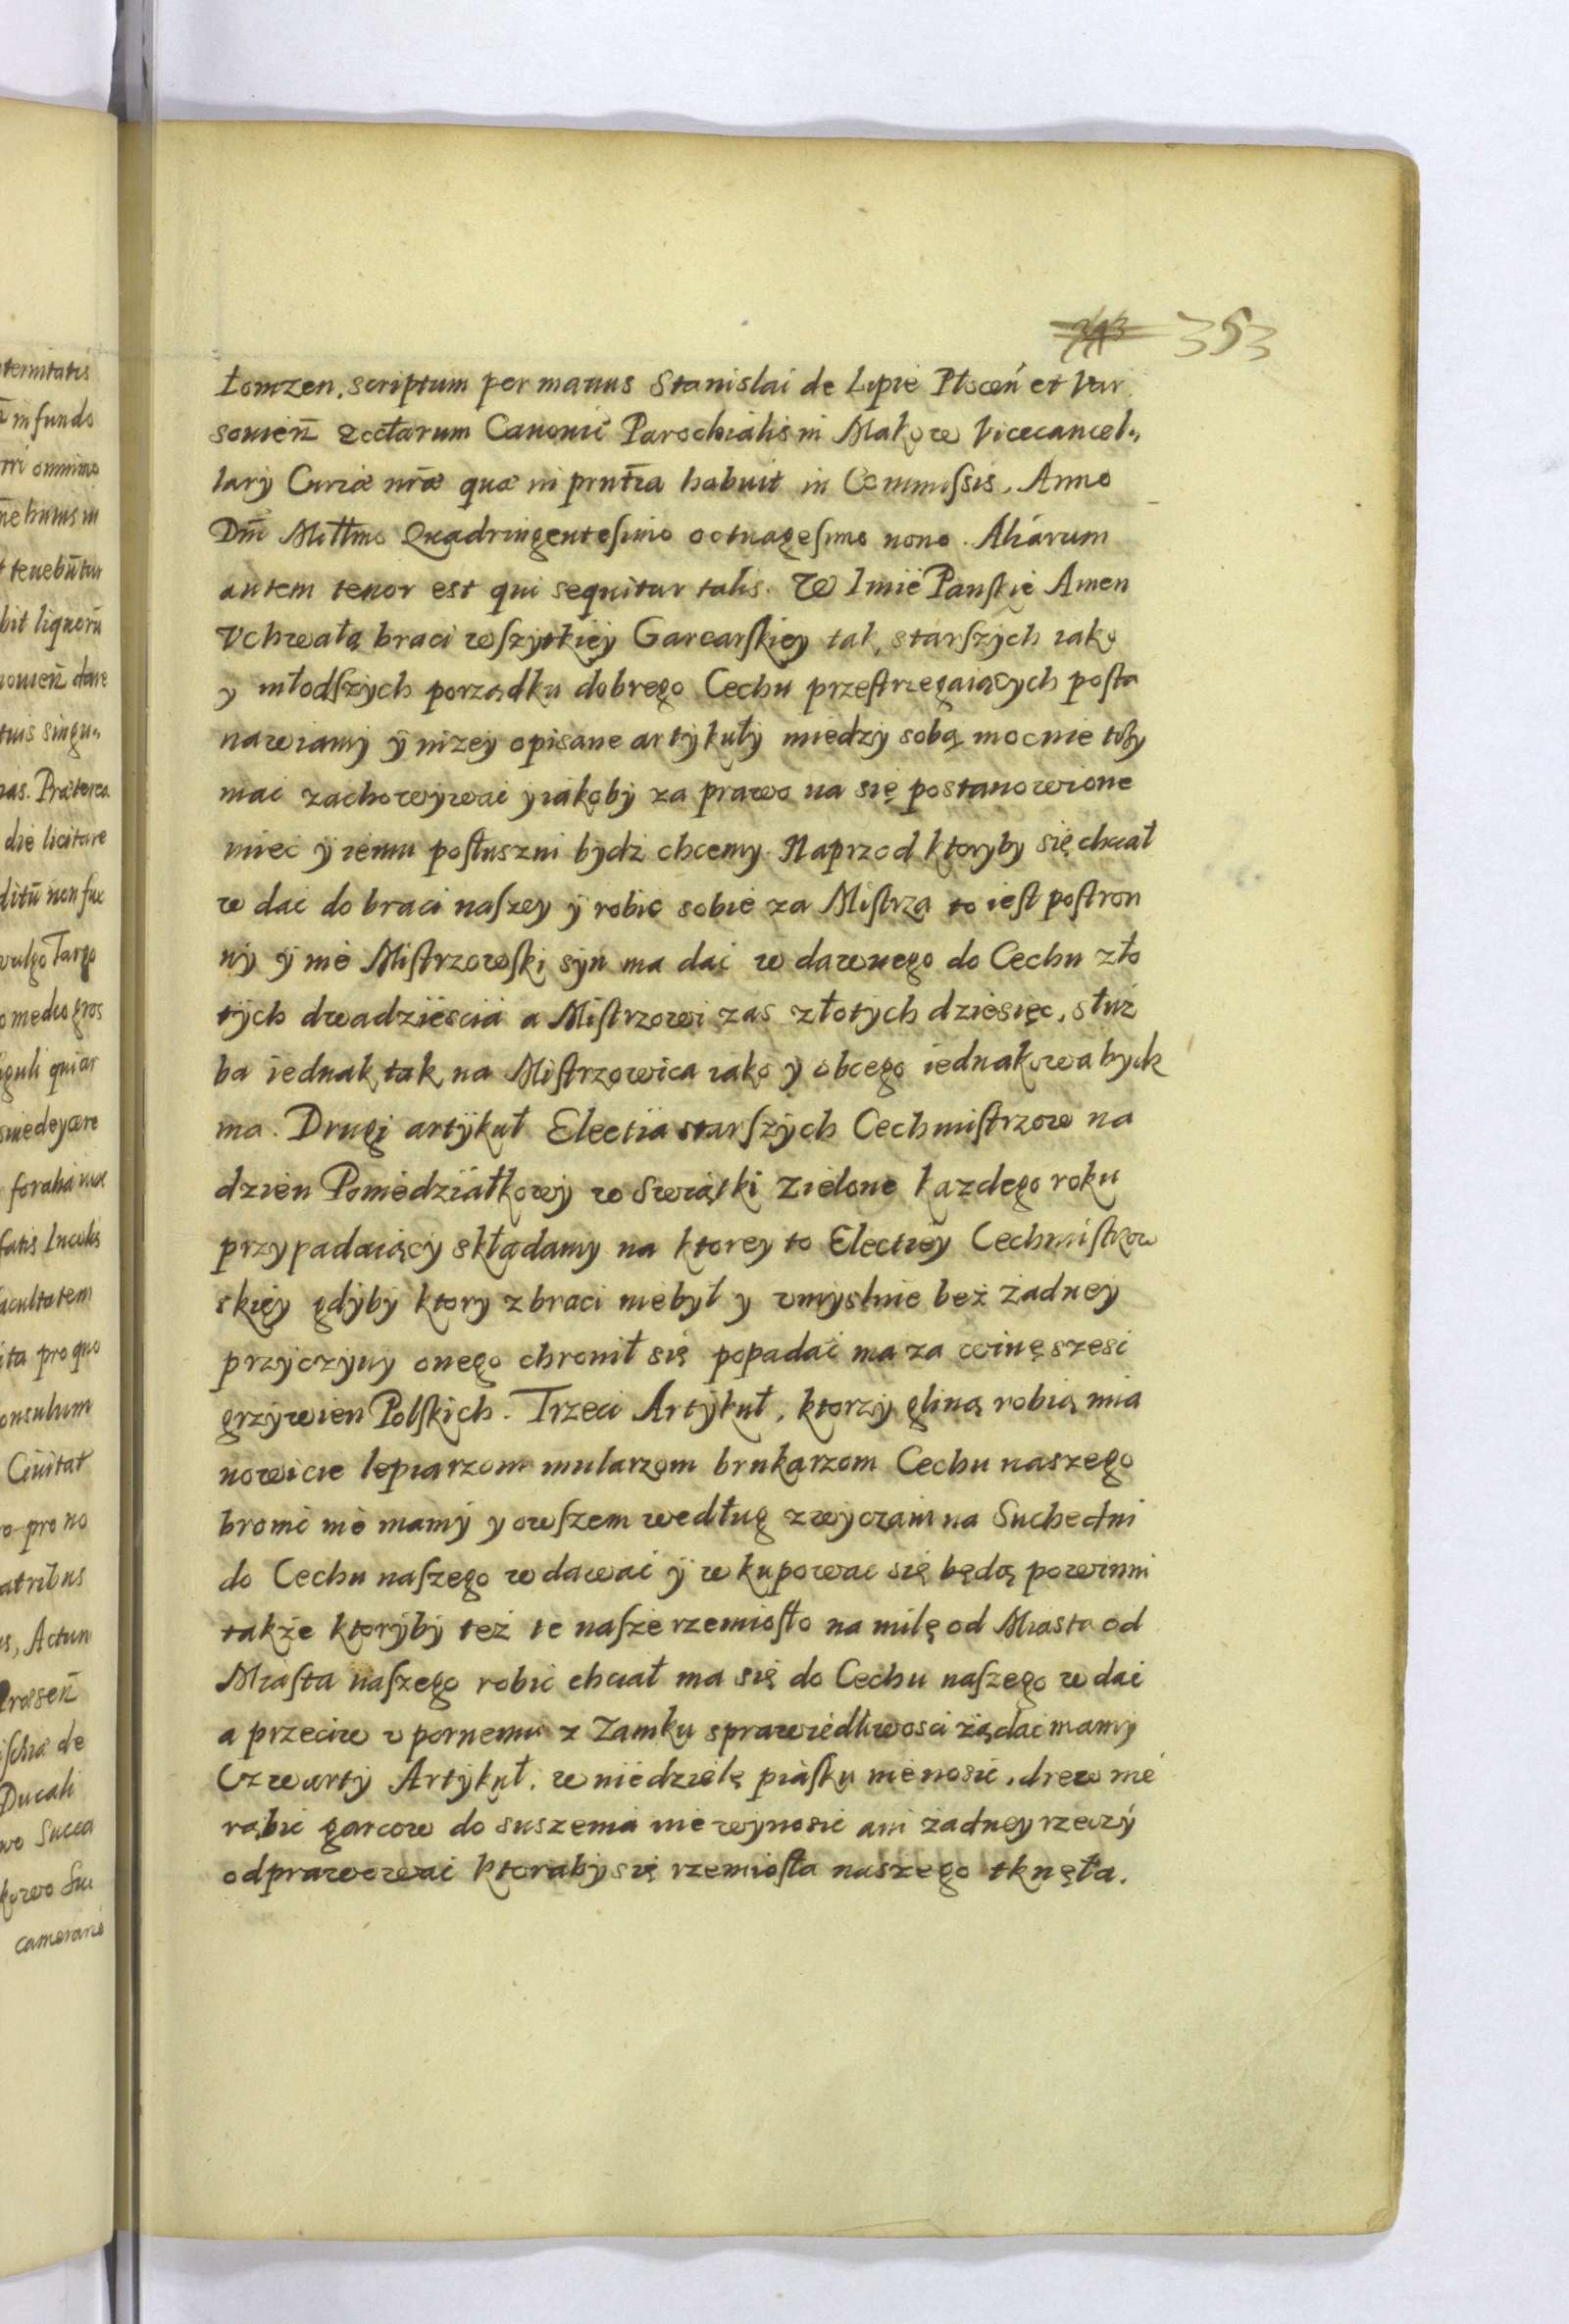 353
Łomzen. scriptum per manus Stanislai de Lipie Płoceń et Var
souień Ecctarum Canonici Parochialis in Makow Vicecancel„
lary Curiæ nr̄æ quæ in prn̄tia habuit in Commissis. Anno
Dn̄i Mill̄mo Quadringentesimo octuagesimo nono. Aliarum
autem tenor est qui sequitur talis. W Imie Panskie Amen
Vchwałą braci wszytkiey Garcarskiey tak starszych iako
y młodszych porządku dobrego Cechu przestrzegaiących posta
nawiamy ÿ nizey opisane artykuły miedzy sobą mocnie trzy
mac zachowywac y iakoby za prawo na się postanowione
miec ÿ iemu posłuszni bydz chcemy. Naprzod ktoryby się chciał
w dac do braci naszey ÿ robic sobie za Mistrza to iest postron
ny ÿ nie Mistrzowski syn ma dac w dawnego do Cechu zło
tych dwadziescia a Mistrzowi zas złotych dziesięc, słuz
ba iednak tak na Mistrzowica iako y obcego iednakowa bydz
ma. Drugi artykuł Electia starszych Cechmistrzow na
dzien Poniedziałkowy w Swiątki Zielone kazdego roku
przypadaiący składamy na ktorey to Electiey Cechmistrzow
skiey gdyby ktory z braci niebył y vmyslnie beż żadney
przyczyny onego chronił się popadac ma za winę szesc
grzywien Polskich. Trzeci Artykuł, ktorzy gliną robią mia
nowicie lepiarzom mularzom brukarzom Cechu naszego
bronic nie mamy y owszem według zwyczaiu na Suchedni
do Cechu naszego w dawac ÿ w kupowac się będą powinni
także ktoryby też te nasze rzemiosło na milę od Miasta od
Miasta naszego robic chciał ma się do Cechu naszego w dac
a przeciw vpornemu z Zamku sprawiedliwosci żądac mamy
Czwarty Artykuł. w niedzielę piasku nienosic, drew nie
rabic garcow do suszenia nie wynosic ani żadney rzeczy
odprawowac ktoraby się rzemiosła naszego tknęła.